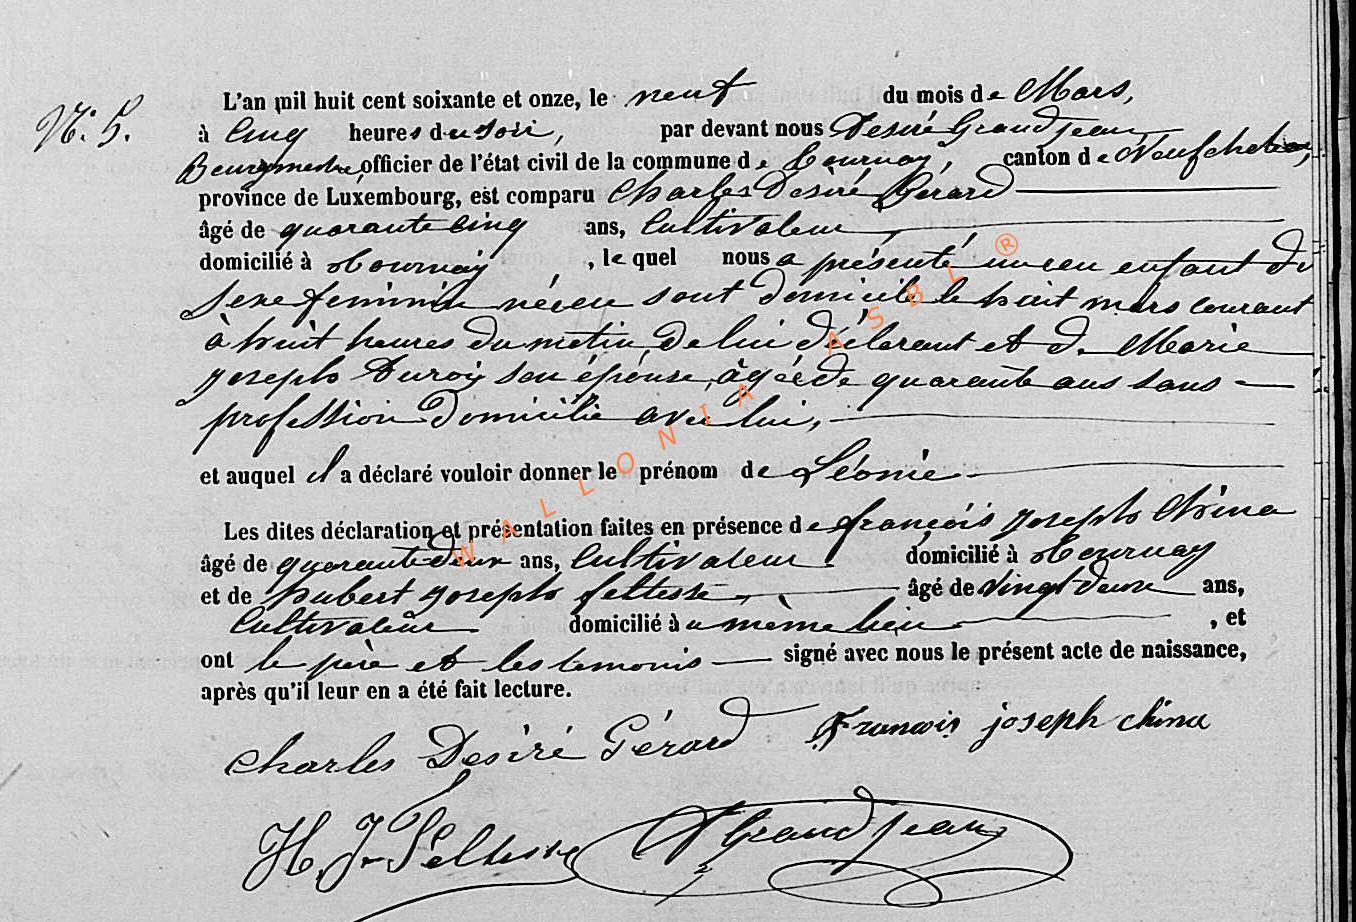 N.º 5.
L'an mil huit cent soixante et onze, le neuf du mois de Mars,
à Cinq heures du soir, par devant nous Désiré Grandjean
Bourgmestre, officier de l'état civil de la commune de Tournay, canton de Neufchateau,
province de Luxembourg, est comparu Charles Désiré Gérard
âgé de quarante cinq ans, Cultivateur
domicilié à Tournay, lequel nous a présenté un enfant du
sexe feminin née en sont domicile le huit mars courant
à huit heures du matin, de lui déclarant et de Marie
joseph Duroy son épouse, âgée de quarante ans sans
profession domicilié avec lui,
et auquel il a déclaré vouloir donner le prénom de Léonie
Les dites déclaration et présentation faites en présence de françois joseph China
âgé de quarante deux ans, Cultivateur domicilié à Tournay
et de hubert joseph feltesse âgé de vingt deux ans,
Cultivateur domicilié au même lieu, et
ont le père et les temoins signé avec nous le présent acte de naissance,
après qu'il leur en a été fait lecture.
Charles Désiré Gérard François joseph china
H. J. Feltesse D Grandjean
WALLONIA ASBL ®